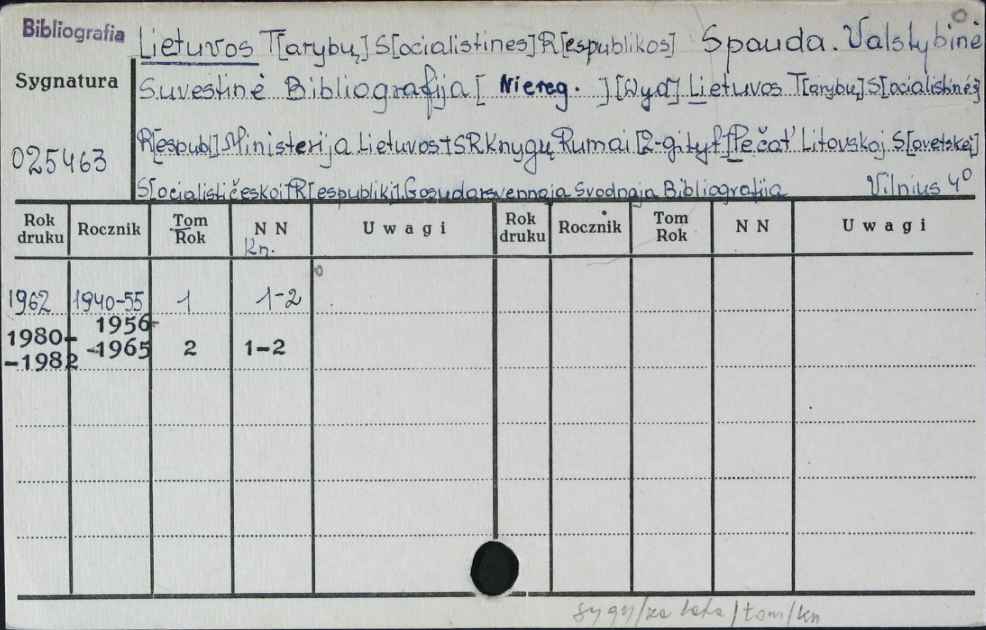 Bibliografia
Lietuvos T[arybų] S[ocialistines] R[espublikos] Spauda. Valstybinė
Sygnatura
Suvestinė Bibliografija [ Niereg. ] [Wyd] Lietuvos T[arybų] S[ocialistinės]
025463
R[espubl] Ministerija Lietuvos TSR Knygų Rumai [2-gi tyt] Pečat' Litovskoj S[ovetskoj]
S[ocialističeskoi] R[espubliki]. Gosudarsvennaja Svodnaja Bibliografija Vilnius 4º
Rok druku Rocznik Tom Rok NN Uwagi Rok druku Rocznik Tom Rok NN Uwagi
Kn.
1962 1940-55 1 1-2
1980- -1982 1956- -1965 2 1-2
sygn/za lata/tom/kn